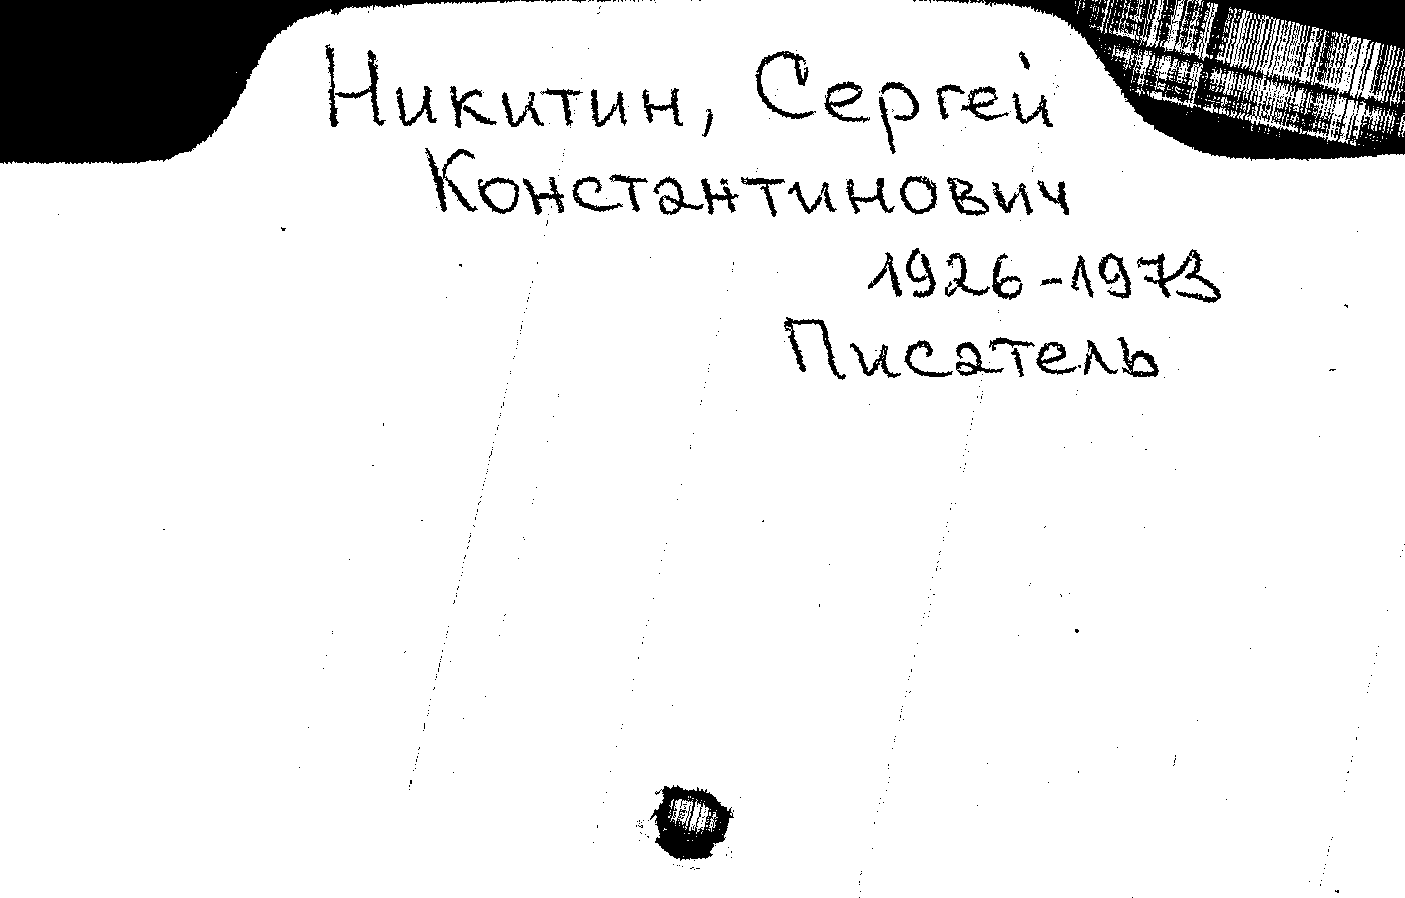 Никитин, Сергей
Константинович
1926-1973
Писатель